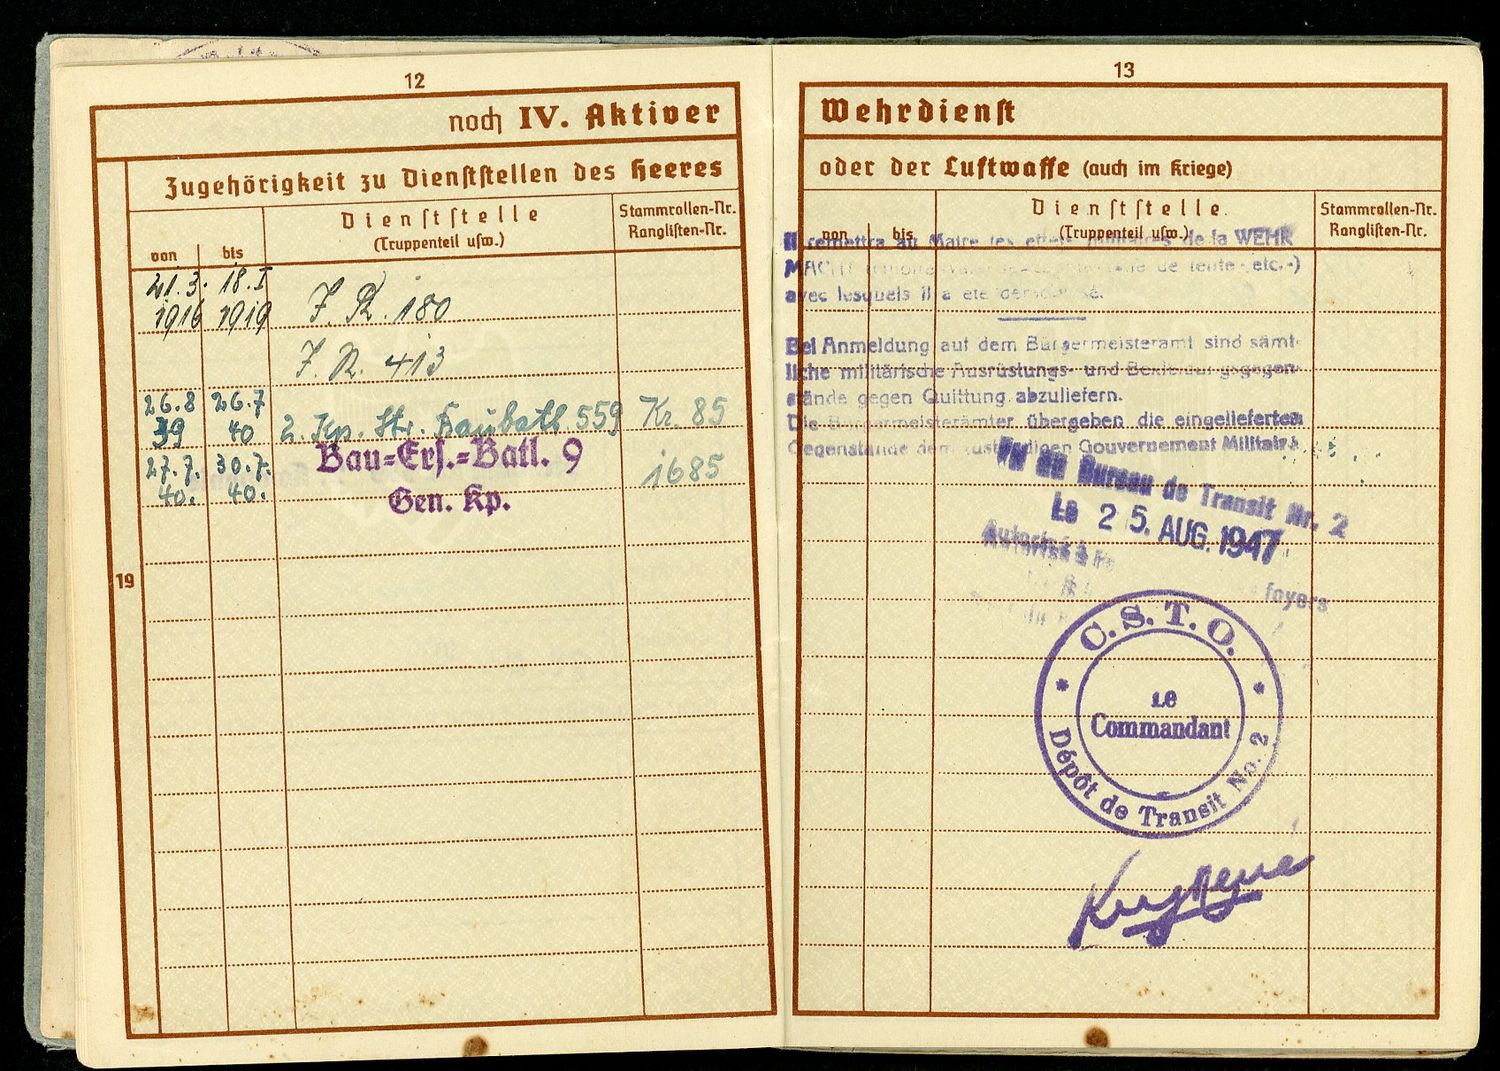 12
noch IV. Aktiver
Zugehörigkeit zu Dienststellen des Heeres
von
bis
Dienststelle
(Truppenteil usw.)
Stammrollen-Nr.
Ranglisten-Nr.
21.3. 18.I
1916 1919 J. R. 180
J. R. 413
26.8 26.7
39 40 2. Kp. Str. Baubatl. 559 Kr. 85
27.7. 30.7. Bau=Ers.=Batl. 9
40. 40. Gen. Kp. 1685
19
13
Wehrdienst
oder der Luftwaffe (auch im Kriege)
von
bis
Dienststelle
(Truppenteil usw.)
Stammrollen-Nr.
Ranglisten-Nr.
Il remettra au Maire les effets militaires de la WEHR
MACHT de tente - etc.-)
avec lesquels il a été
Bei Anmeldung auf dem Bürgermeisteramt sind sämt-
liche militärische Ausrüstungs- und Bekleidungsgegen-
stände gegen Quittung abzuliefern.
Die Bürgermeisterämter übergeben die eingelieferten
Gegenstände dem zuständigen Gouvernement Militaire.
Vu au Bureau de Transit Nr. 2
Le 25. AUG. 1947
Autorisé à
foyers
C.S.T.O.
Le
Commandant
Dépôt de Transit No. 2